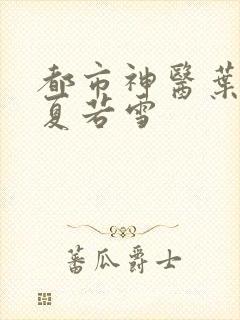 都市神醫葉
夏若雪
蕃瓜爵士